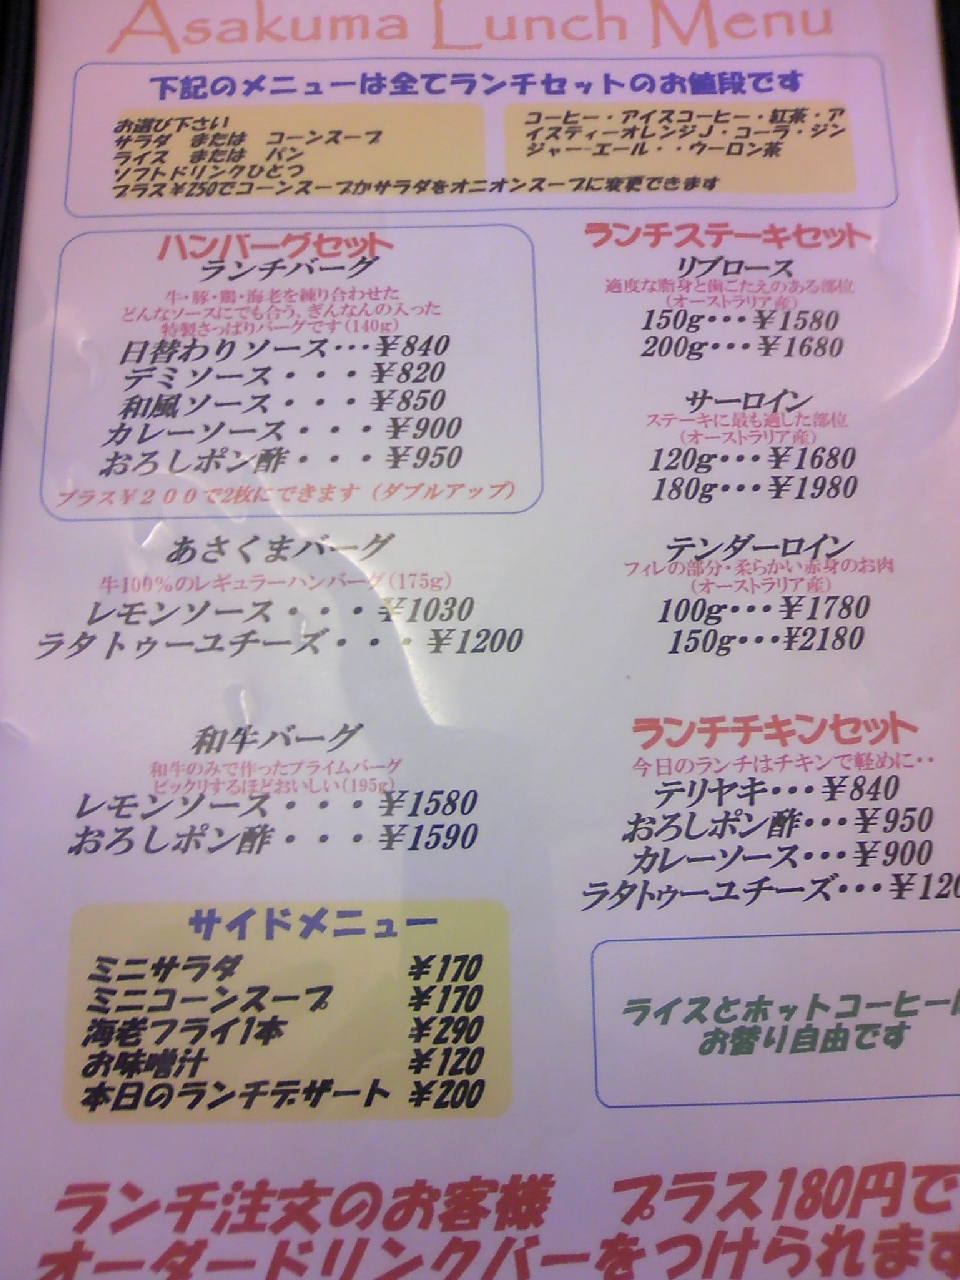 Asakuma Lunch Menu
下記のメニューは全てランチセットのお値段です
お選び下さい
サラダ または コーンスープ
ライス または パン
ソフトドリンクひとつ
プラス¥250でコーンスープかサラダをオニオンスープに変更できます
コーヒー・アイスコーヒー・紅茶・ア
イスティーオレンジJ・コーラ・ジン
ジャーエール・・ウーロン茶
ハンバーグセット
ランチバーグ
牛・豚・鶏・海老を練り合わせた
どんなソースにでも合う、ぎんなんの入った
特製さっぱりバーグです(140g)
日替わりソース・・・¥840
デミソース・・・¥820
和風ソース・・・¥850
カレーソース・・・¥900
おろしポン酢・・・¥950
プラス¥200で2枚にできます(ダブルアップ)
あさくまバーグ
牛100%のレギュラーハンバーグ(175g)
レモンソース・・・¥1030
ラタトゥーユチーズ・・・¥1200
和牛バーグ
和牛のみで作ったプライムバーグ
ビックリするほどおいしい(195g)
レモンソース・・・¥1580
おろしポン酢・・・¥1590
サイドメニュー
ミニサラダ ¥170
ミニコーンスープ ¥170
海老フライ1本 ¥290
お味噌汁 ¥120
本日のランチデザート ¥200
ランチステーキセット
リブロース
適度な脂身と歯ごたえのある部位
(オーストラリア産)
150g・・・¥1580
200g・・・¥1680
サーロイン
ステーキに最も適した部位
(オーストラリア産)
120g・・・¥1680
180g・・・¥1980
テンダーロイン
フィレの部分・柔らかい赤身のお肉
(オーストラリア産)
100g・・・¥1780
150g・・・¥2180
ランチチキンセット
今日のランチはチキンで軽めに・・
テリヤキ・・・¥840
おろしポン酢・・・¥950
カレーソース・・・¥900
ラタトゥーユチーズ・・・¥120
ライスとホットコーヒー
お替り自由です
ランチ注文のお客様 プラス180円で
オーダードリンクバーをつけられます